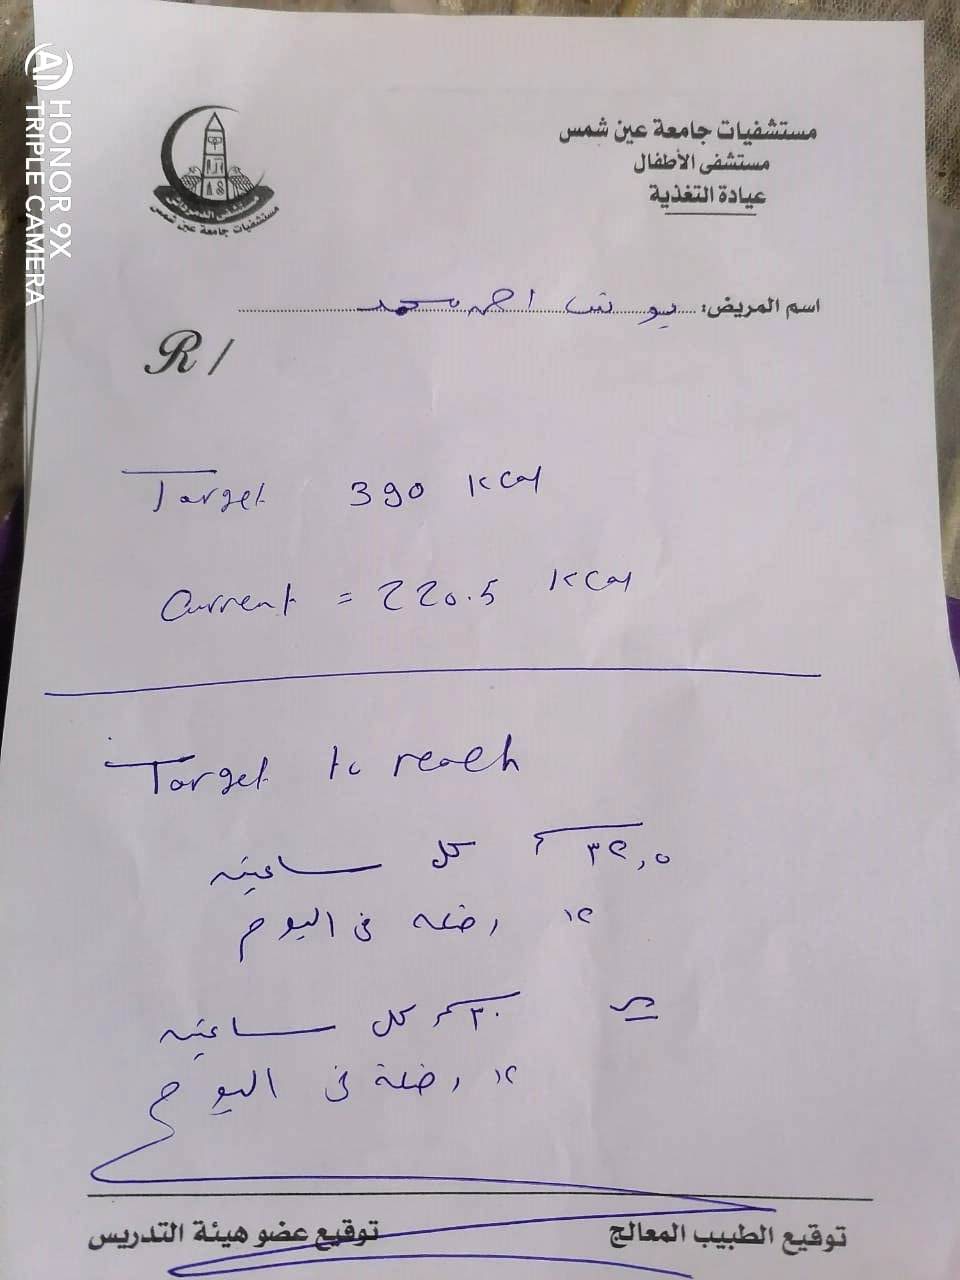 HONOR 9X
TRIPLE CAMERA
مستشفيات جامعة عين شمس
مستشفى الأطفال
عيادة التغذية
مستشفى الدمرداش
مستشفيات جامعة عين شمس
اسم المريض: احمد محمد
R/
Target 390 Kcal
Current = 220.5 Kcal
Target to reach
٣٢,٥ كل ساعتين
١٢ رضعه فى اليوم
٣٠ كل ساعتين
١٢ رضعة فى اليوم
توقيع الطبيب المعالج
توقيع عضو هيئة التدريس